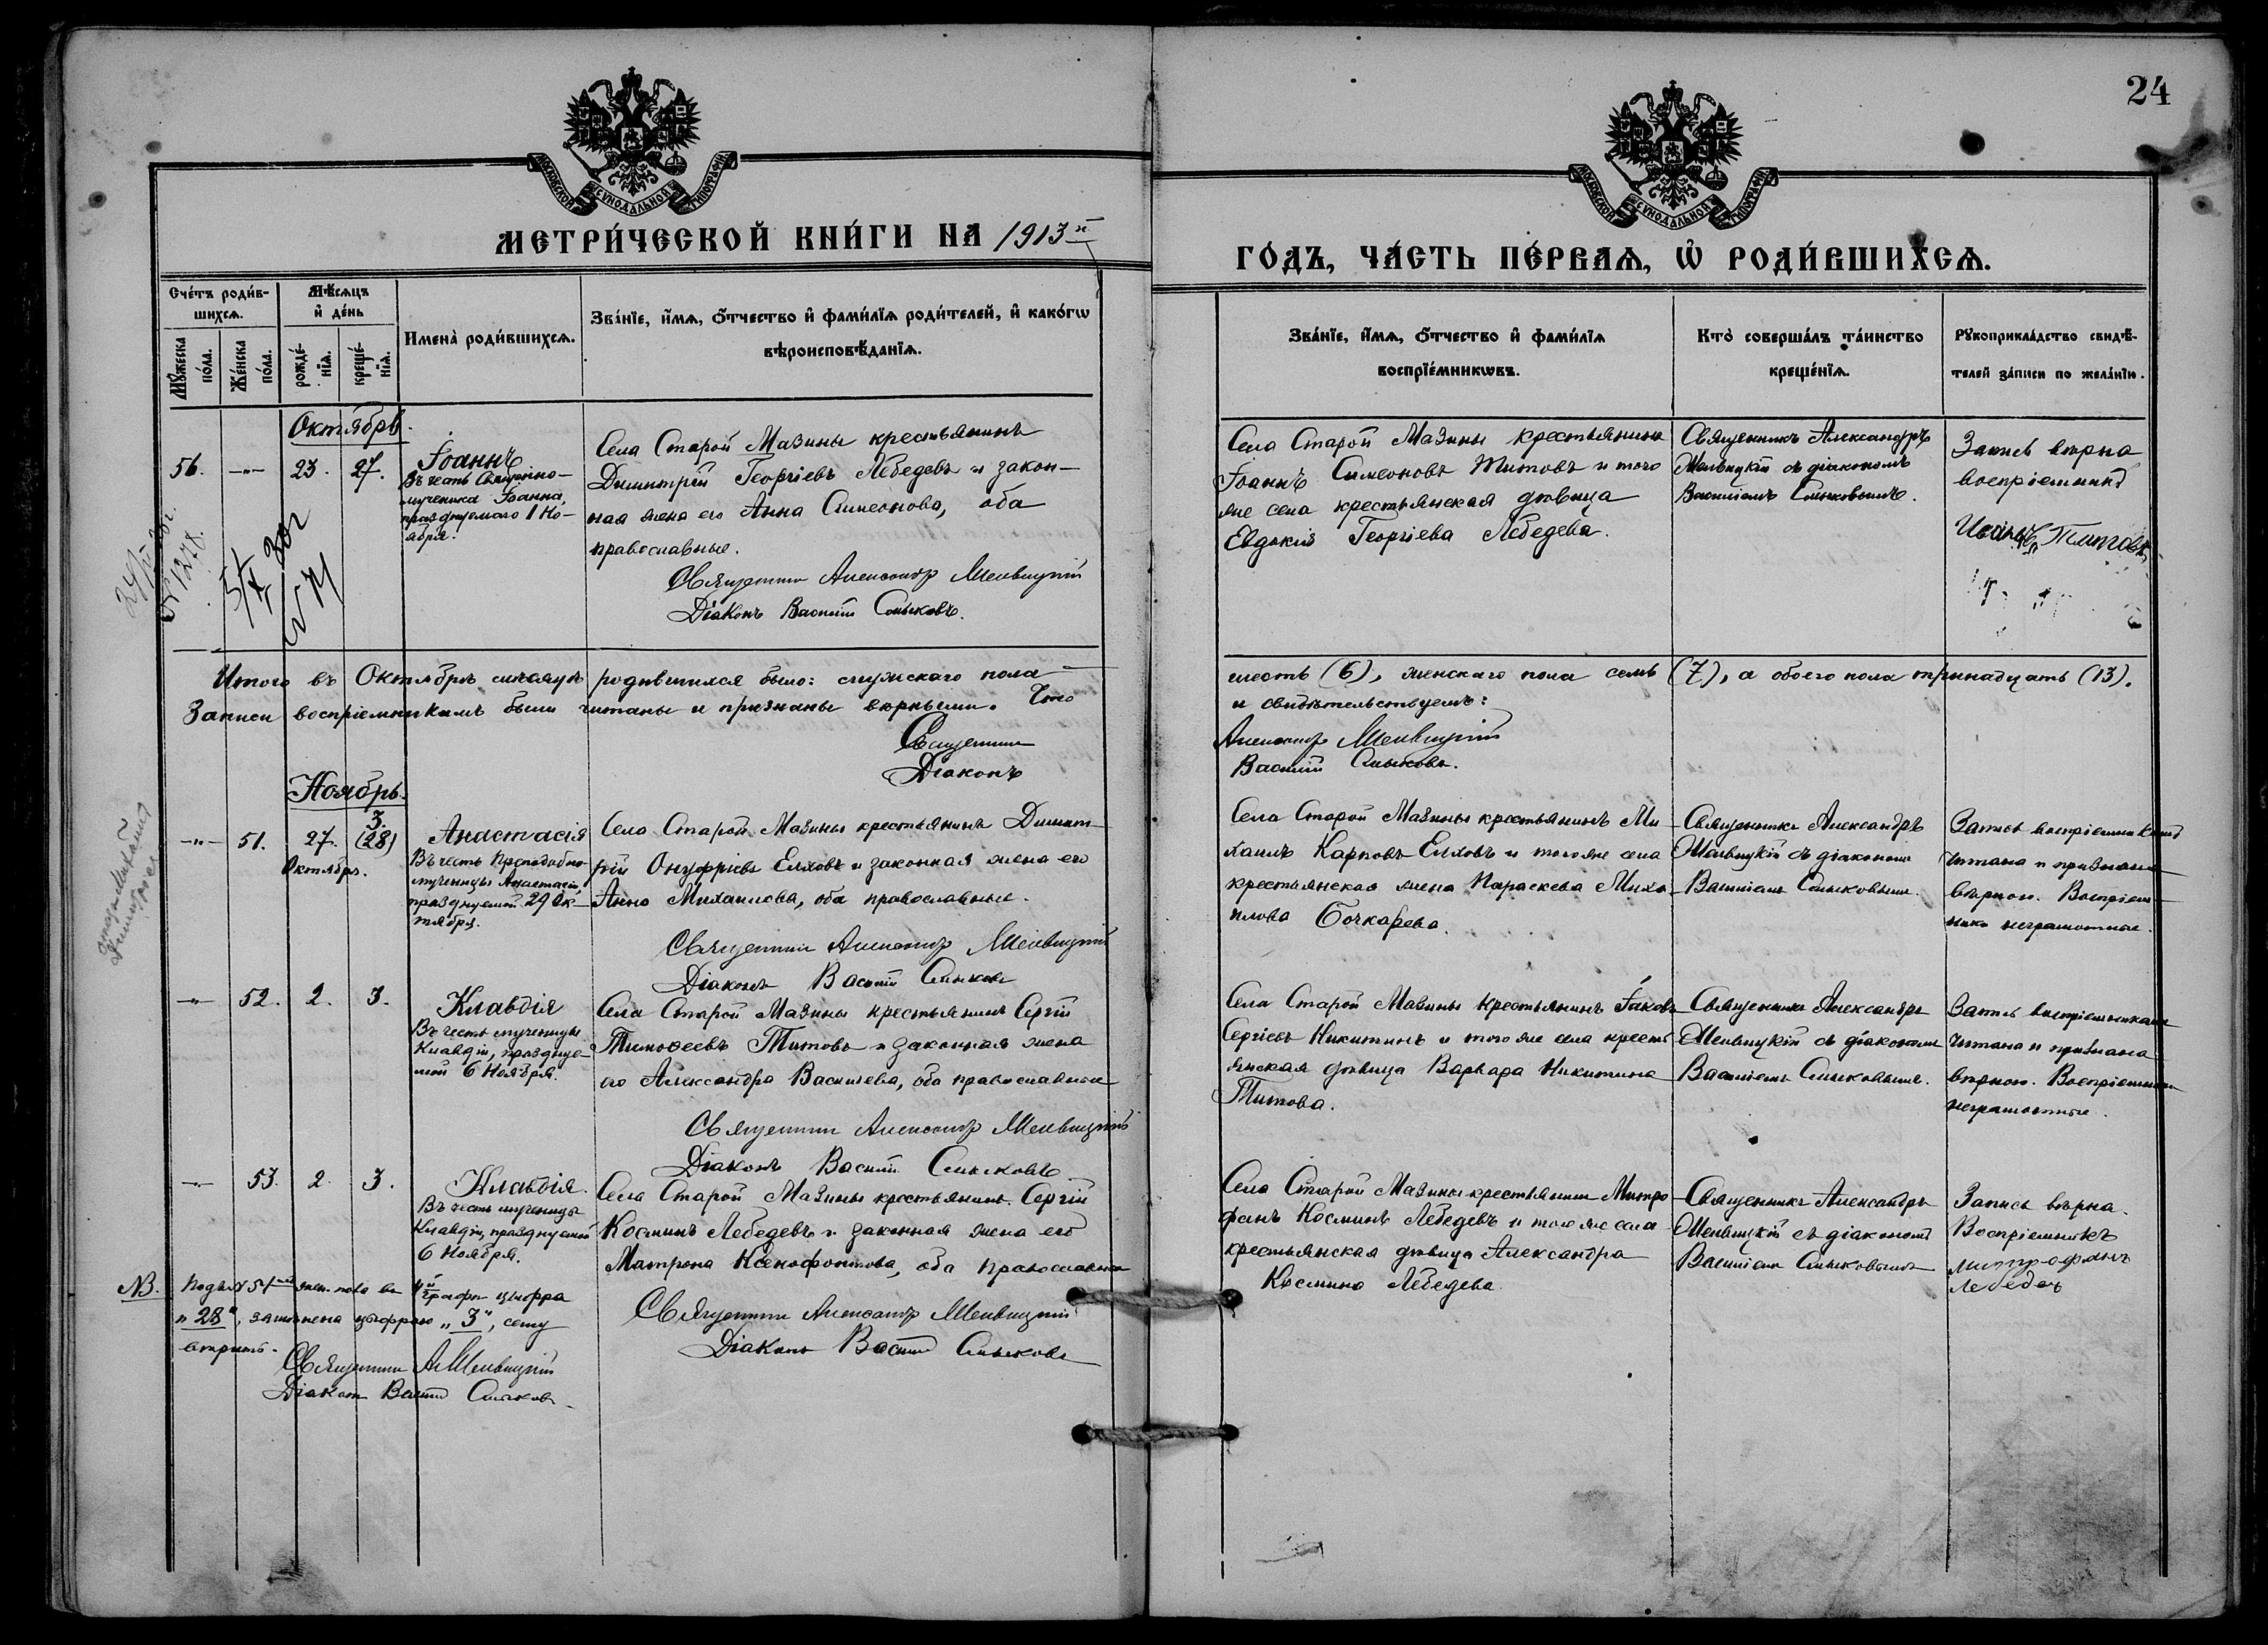 24
МОСКОВСКОЙ СѴНОДАЛЬНОЙ ТИПОГРАФІИ
МОСКОВСКОЙ СѴНОДАЛЬНОЙ ТИПОГРАФІИ
МЕТРИ́ЧЕСКОЙ КНИ́ГИ НА 1913й
ГО́ДЪ, ЧА́СТЬ ПЕ́РВАѦ, Ѡ҆ РОДИ́ВШИХСѦ.
Сче́тъ роди́в-
шихсѧ.
Мꙋ́жеска
по́ла.
Же́нска
по́ла.
Мѣ́сѧцъ
и҆ де́нь
рожде́-
нїѧ.
креще́-
нїѧ.
Имена̀ роди́вшихсѧ.
Зва́нїе, и҆́мѧ, ѻ҆́тчество и҆ фами́лїѧ роди́телей, и҆ како́гѡ
вѣроисповѣ́данїѧ.
Зва́нїе, и҆́мѧ, ѻ҆́тчество и҆ фами́лїѧ
воспрїе́мникѡвъ.
Кто̀ соверша́лъ та́инство
креще́нїѧ.
Рꙋкоприкла́дство свидѣ́-
телей за́писи по жела́нїю.
Октябрь.
56. -"- 23. 27.
Іоаннъ
Въ честь Священно-
мученика Іоанна,
празднуемаго 1 Но-
ября.
Села Старой Мазины крестьянинъ
Димитрій Георгіевъ Лебедевъ и закон-
ная жена его Анна Симеонова, оба
православные.
Священникъ Александр Мельвицкій
Діаконъ Василій Смыковъ.
Села Старой Мазины крестьянинъ
Іоаннъ Симеоновъ Титовъ и того
же села крестьянская дѣвица
Евдокія Георгіева Лебедева.
Священникъ Александръ
Мельвицкій съ діакономъ
Василіемъ Смыковымъ.
Запись вѣрна
воспріемникъ
Иванъ Титовъ
№ 1278.
Итого въ Октябрѣ мѣсяцѣ родившихся было: мужскаго пола
шесть (6), женскаго пола семь (7), а обоего пола тринадцать (13).
Записи воспріемникамъ были читаны и признаны вѣрными. Что
и свидѣтельствуемъ:
Священникъ
Александръ Мельвицкій
Діаконъ
Василій Смыковъ.
Ноябрь.
-"- 51. 27. 3. (28)
Октября.
Анастасія
Въ честь Преподобно-
мученицы Анастасіи,
празднуемой 29 Ок-
тября.
Села Старой Мазины крестьянинъ Димит-
рій Онуфріевъ Елховъ и законная жена его
Анна Михаилова, оба православные.
Священникъ Александр Мельвицкій
Діаконъ Василій Смыковъ
Села Старой Мазины крестьянинъ Ми-
хаилъ Карповъ Елховъ и того же села
крестьянская жена Параскева Миха-
илова Бочкарева.
Священникъ Александръ
Мельвицкій съ діакономъ
Василіемъ Смыковымъ.
Запись воспріемникамъ
читана и признана
вѣрною. Воспріем-
ники неграмотные.
-"- 52. 2. 3.
Клавдія
Въ честь мученицы
Клавдіи, празднуе-
мой 6 Ноября.
Села Старой Мазины крестьянинъ Сергій
Тимоѳеевъ Титовъ и законная жена
его Александра Васильева, оба православные
Священникъ Александр Мельвицкій
Діаконъ Василій Смыковъ
Села Старой Мазины крестьянинъ Іаковъ
Сергіевъ Никитинъ и того же села кресть-
янская дѣвица Варвара Никитина
Титова.
Священникъ Александръ
Мельвицкій съ діакономъ
Василіемъ Смыковымъ.
Запись воспріемникамъ
читана и признана
вѣрною. Воспріемники
неграмотные.
-"- 53. 2. 3.
Клавдія.
Въ честь мученицы
Клавдіи, празднуемой
6 Ноября.
Села Старой Мазины крестьянинъ Сергій
Косминъ Лебедевъ и законная жена его
Матрона Ксенофонтова, оба православные
Священникъ Александр Мельвицкій
Діаконъ Василій Смыковъ
Села Старой Мазины крестьянинъ Митро-
фанъ Косминъ Лебедевъ и того же села
крестьянская дѣвица Александра
Космина Лебедева.
Священникъ Александръ
Мельвицкій съ діакономъ
Василіемъ Смыковымъ
Запись вѣрна.
Воспріемникъ
митрофанъ
Лебедевъ
NB. Подъ № 51 жен. пола въ 4й графѣ цыфра
„28", замѣнена цыфрою „3", сему
вѣрить.
Священникъ А. Мельвицкій
Діаконъ Василій Смыковъ.